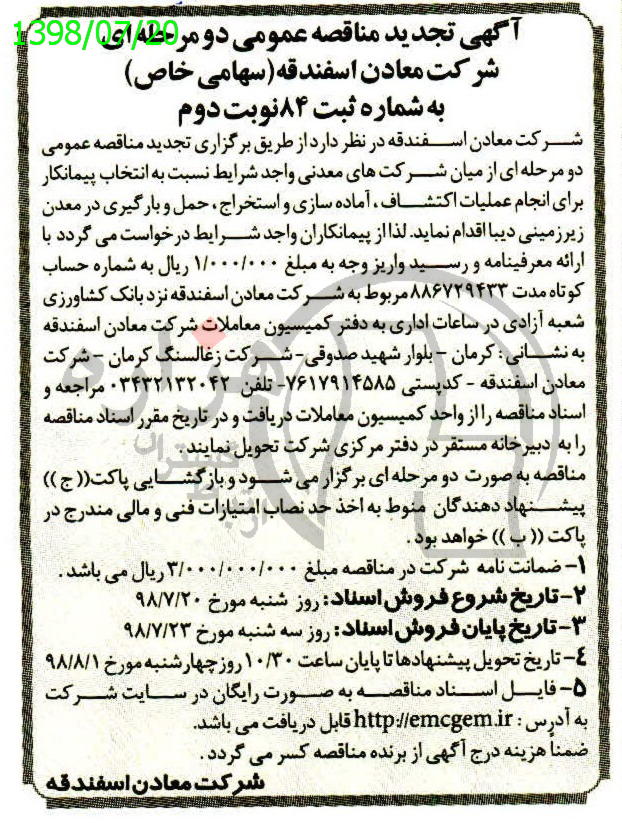 1398/07/20
آگهی تجدید مناقصه عمومی دو مرحله ای
شرکت معادن اسفندقه(سهامی خاص)
به شماره ثبت ۸۴نوبت دوم
شرکت معادن اسفندقه در نظر دارد از طریق برگزاری تجدید مناقصه عمومی
دو مرحله ای از میان شرکت های معدنی واجد شرایط نسبت به انتخاب پیمانکار
برای انجام عملیات اکتشاف ، آماده سازی و استخراج ، حمل و بارگیری در معدن
زیرزمینی دیبا اقدام نماید. لذا از پیمانکاران واجد شرایط درخواست می گردد با
ارائه معرفینامه و رسید واریز وجه به مبلغ ۱/۰۰۰/۰۰۰ ریال به شماره حساب
کوتاه مدت ۸۸۶۷۲۹۴۳۳ مربوط به شرکت معادن اسفندقه نزد بانک کشاورزی
شعبه آزادی در ساعات اداری به دفتر کمیسیون معاملات شرکت معادن اسفندقه
به نشانی : کرمان - بلوار شهید صدوقی- شرکت زغالسنگ کرمان - شرکت
معادن اسفندقه - کدپستی ۷۶۱۷۹۱۴۵۸۵- تلفن ۰۳۴۳۲۱۳۲۰۴۲ مراجعه و
اسناد مناقصه را از واحد کمیسیون معاملات دریافت و در تاریخ مقرر اسناد مناقصه
را به دبیرخانه مستقر در دفتر مرکزی شرکت تحویل نمایند .
مناقصه به صورت دو مرحله ای برگزار می شود و بازگشایی پاکت(( ج ))
پیشنهاد دهندگان منوط به اخذ حد نصاب امتیازات فنی و مالی مندرج در
پاکت (( ب )) خواهد بود .
۱- ضمانت نامه شرکت در مناقصه مبلغ ۳/۰۰۰/۰۰۰/۰۰۰ ریال می باشد .
۲- تاریخ شروع فروش اسناد: روز شنبه مورخ ۹۸/۷/۲۰
۳- تاریخ پایان فروش اسناد: روز سه شنبه مورخ ۹۸/۷/۲۳
۴- تاریخ تحویل پیشنهادها تا پایان ساعت ۱۰/۳۰ روز چهارشنبه مورخ ۹۸/۸/۱
۵- فایل اسناد مناقصه به صورت رایگان در سایت شرکت
به آدرس : http://emcgem.ir قابل دریافت می باشد.
ضمناً هزینه درج آگهی از برنده مناقصه کسر می گردد .
شرکت معادن اسفندقه
هزاره